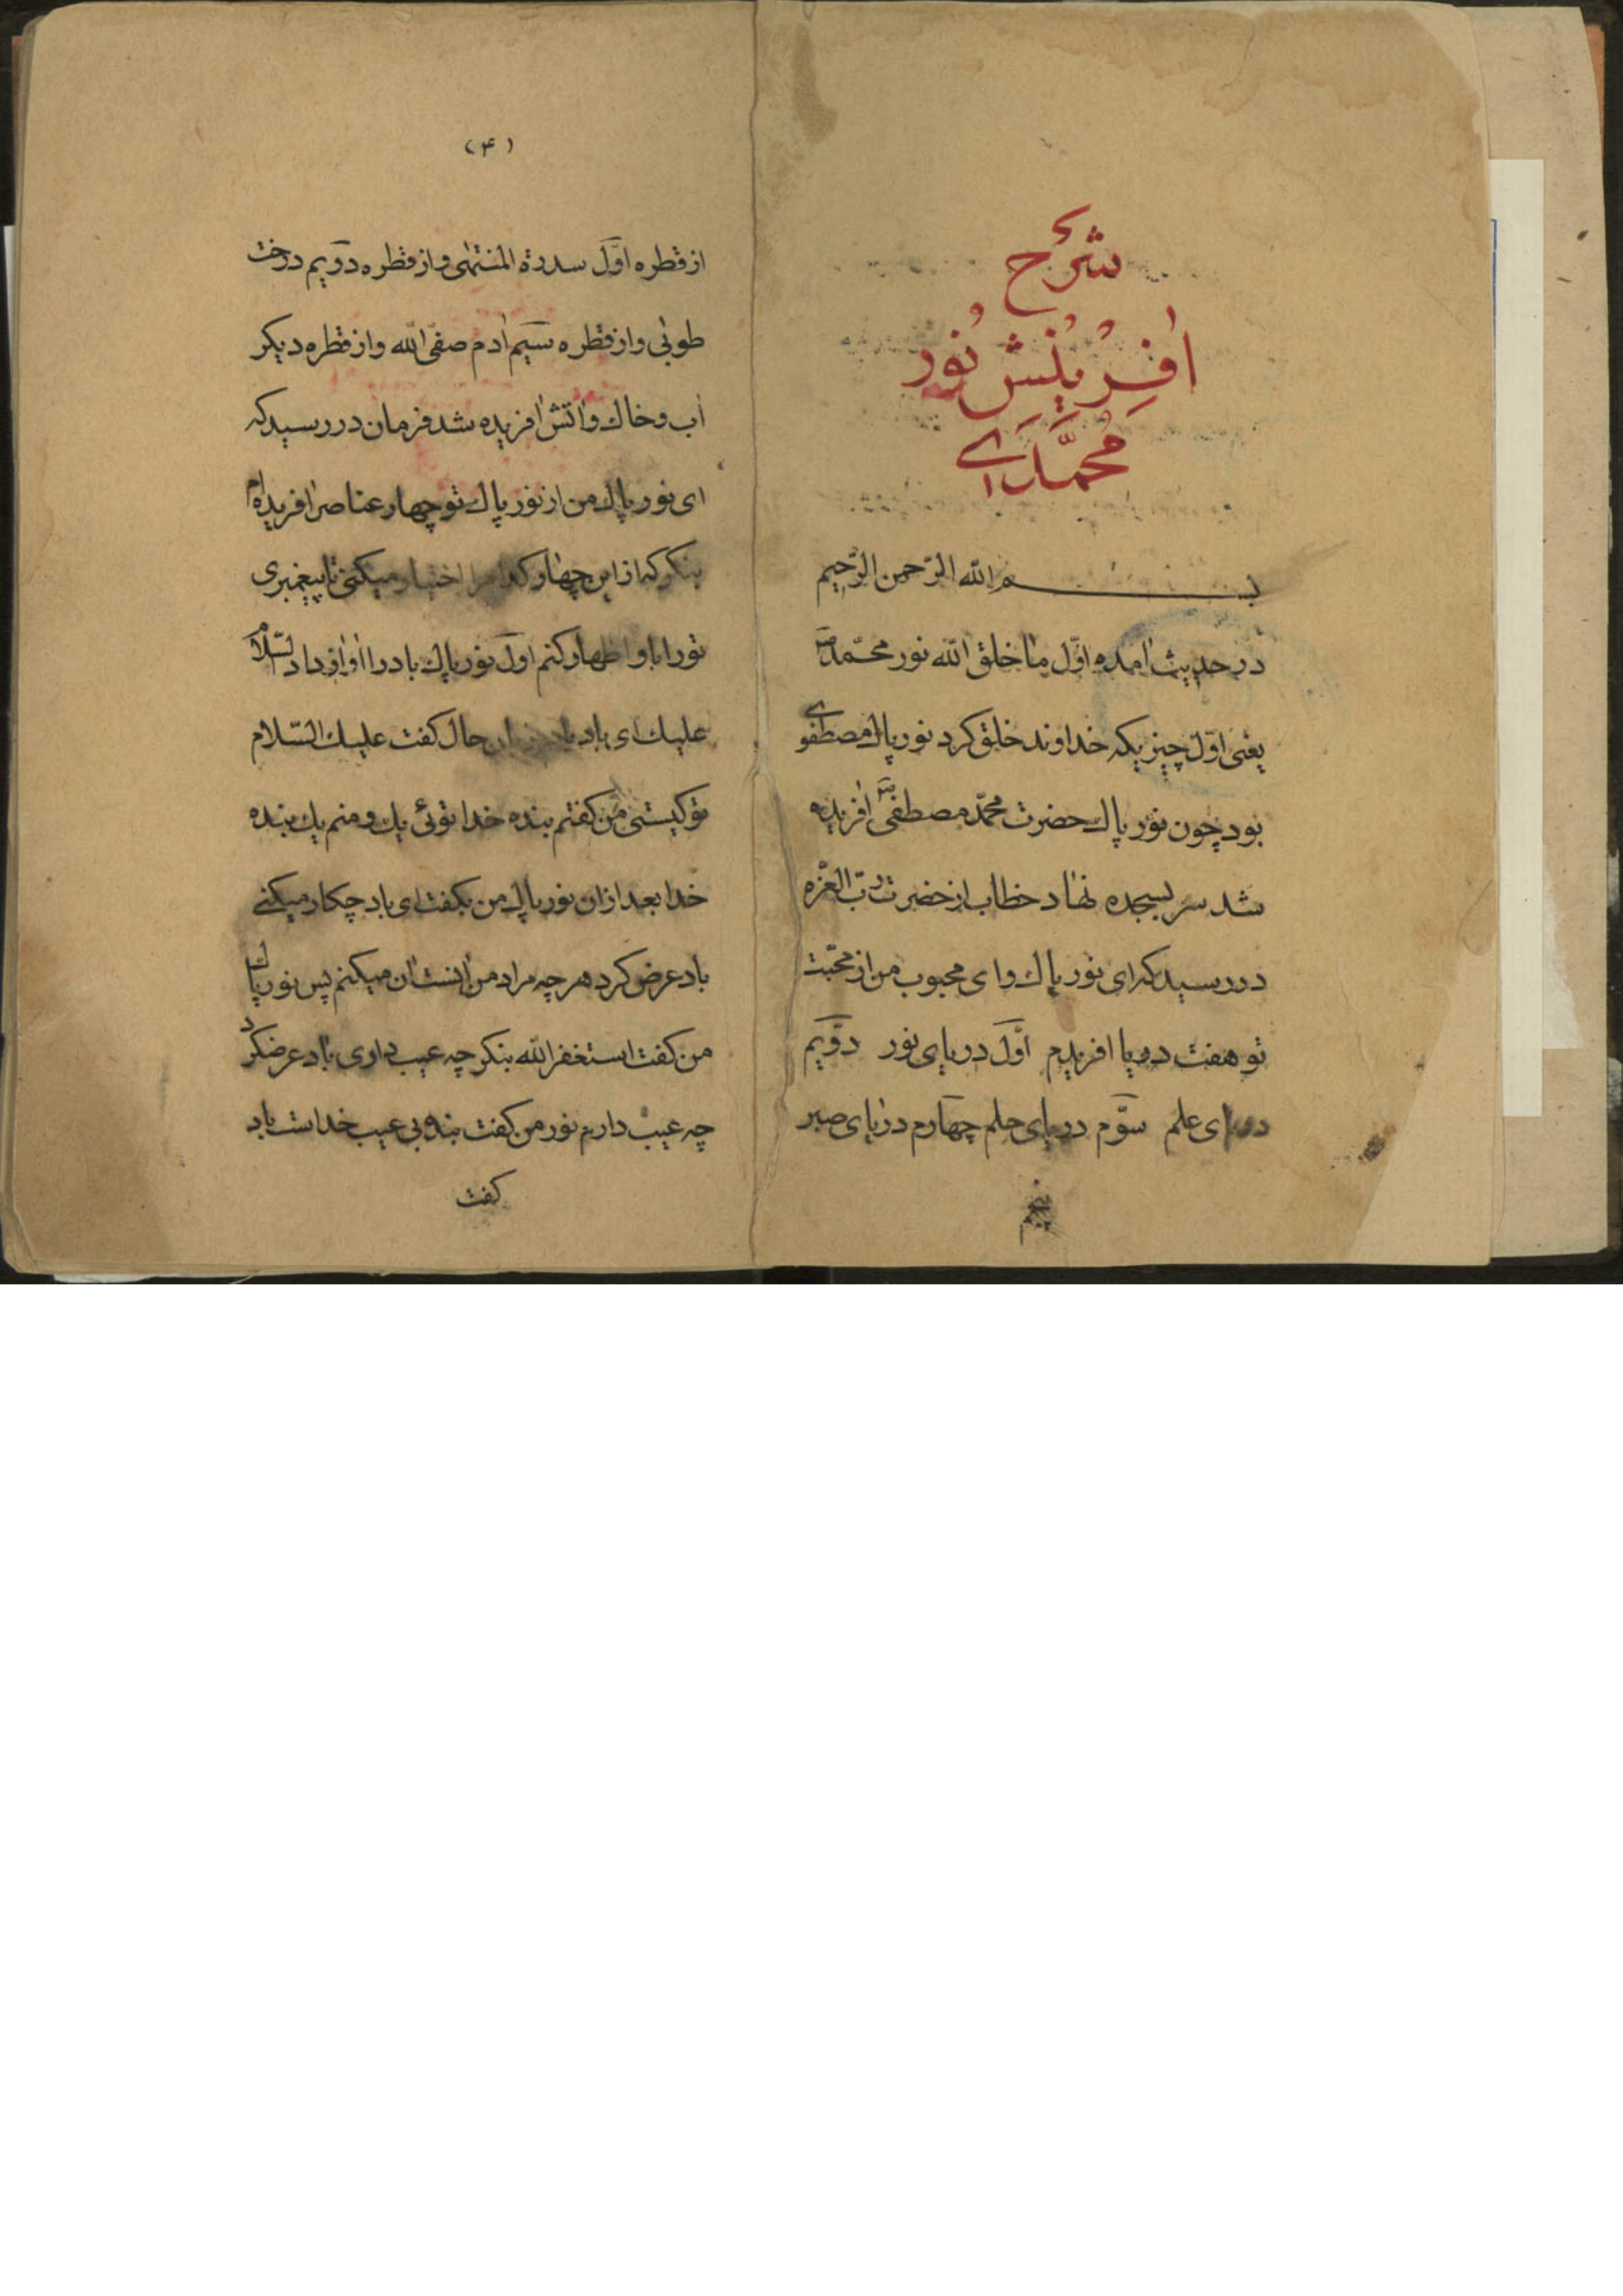 شرح
افرینش نور
محمدی
بسم الله الرّحمن الرّحیم
در حدیث امده اوّل ما خلق الله نور محمّد ص
یعنی اوّل چیزیکه خداوند خلق کرد نور پاك مصطفوی
بود چون نور پاك حضرت محمّد مصطفی ص افریده
شد سر بسجده نهاد خطاب از حضرت ربّ العزّه
در رسید که ای نور پاك و ای محبوب من از محبّت
تو هفت دریا افریدم اوّل دریای نور دوّیم
دریای علم سوّم دریای حلم چهارم دریای صبر
پنجم
(۴)
از قطره اوّل سدرة المنتهی و از قطره دوّیم درخت
طوبی و از قطره سیّم ادم صفی الله و از قطره دیکر
اب و خاك و اتش افریده شد فرمان در رسید که
ای نور پاك من از نور پاك تو چهار عناصر افریده‌ام
بنکر که از این چهار کدام را اختیار میکنی تا پیغمبری
تو را باو اظهار کنم اول نور پاك باد را اواز داد السّلام
علیك ای باد باد در حال کفت علیك السّلام
تو کیستی من کفتم بنده خدا توئی یك و منم یك بنده
خدا بعد ازان نور پاك من بکفت ای باد چکار میکنے
باد عرض کرد هر چه مراد من انست ان میکنم پس نور پاك
من کفت استغفر الله بنکر چه عیب داری باد عرضکرد
چه عیب دارم نور من کفت بنده بی عیب خداست باد
کفت